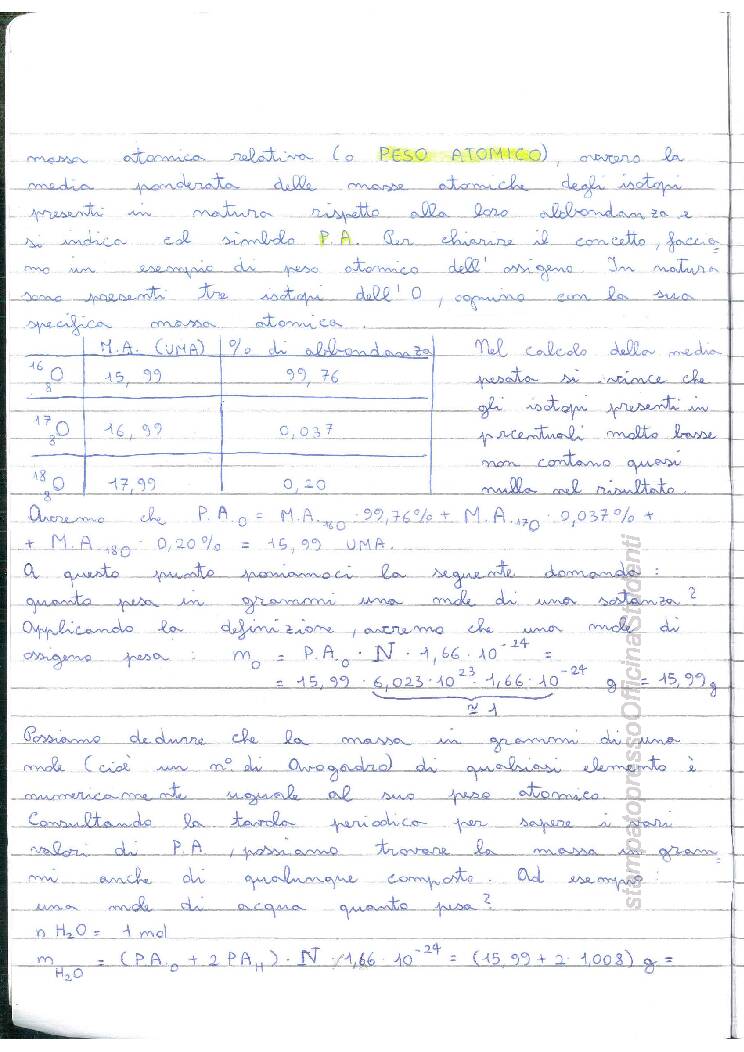 massa atomica relativa (o PESO ATOMICO), ovvero la
media ponderata delle masse atomiche degli isotopi
presenti in natura rispetto alla loro abbondanza e
si indica col simbolo P.A. Per chiarire il concetto, faccia=
mo un esempio di peso atomico dell'ossigeno. In natura
sono presenti tre isotopi dell'O, ognuno con la sua
specifica massa atomica.
M.A. (UMA) % di abbondanza
¹⁶₈O 15,99 99,76
¹⁷₈O 16,99 0,037
¹⁸₈O 17,99 0,20
Nel calcolo della media
pesata si evince che
gli isotopi presenti in
percentuali molto basse
non contano quasi
nulla nel risultato.
Avremo che P.A.O = M.A.16O · 99,76% + M.A.17O · 0,037% +
+ M.A.18O · 0,20% = 15,99 UMA.
A questo punto poniamoci la seguente domanda:
quanto pesa in grammi una mole di una sostanza?
Applicando la definizione, avremo che una mole di
ossigeno pesa: mO = P.A.O · N · 1,66 · 10⁻²⁴ =
= 15,99 · 6,023 · 10²³ · 1,66 · 10⁻²⁴ g = 15,99 g
≃ 1
Possiamo dedurre che la massa in grammi di una
mole (cioè un n° di Avogadro) di qualsiasi elemento è
numericamente uguale al suo peso atomico.
Consultando la tavola periodica per sapere i vari
valori di P.A., possiamo trovare la massa in gram=
mi anche di qualunque composto. Ad esempio:
una mole di acqua quanto pesa?
n H₂O = 1 mol
mH₂O = (P.A.O + 2 PAH) · N · 1,66 · 10⁻²⁴ = (15,99 + 2 · 1,008) g =
stampatopressoOfficinaStudenti